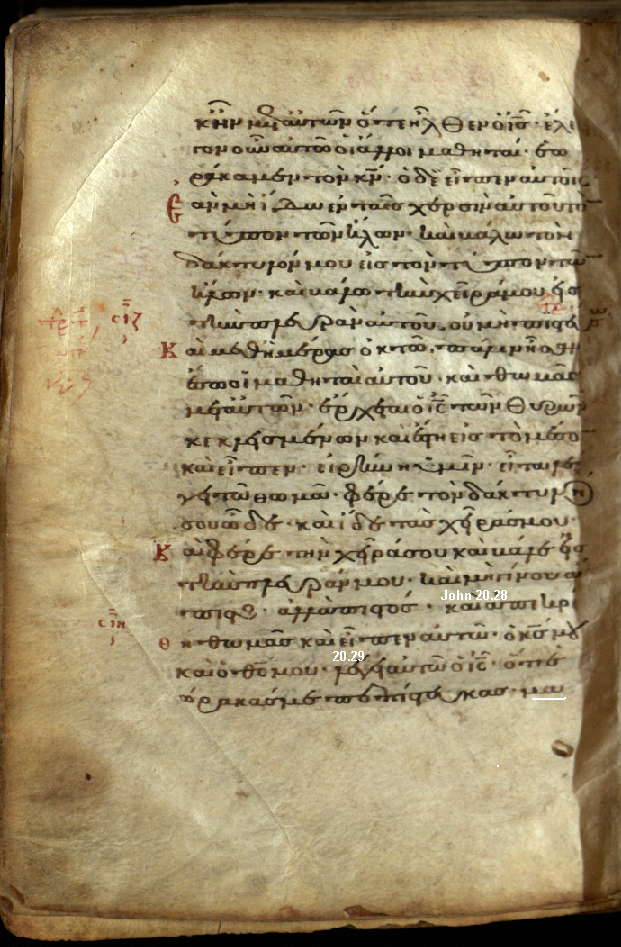 κ ἦν μετ αὐτῶν ὅτε ἦλθεν ὁ ις· ἔλε
γον οὖν αὐτῶ οἱ ἄλλοι μαθηταί· ἑω
ράκαμεν τὸν κν· ὁ δὲ εἶπεν αὐτοῖς
Ἐὰν μὴ ἴδω ἐν ταῖς χερσὶν αὐτοῦ τὸ
τύπον τῶν ἥλων· καὶ βάλω τὸν
δάκτυλόν μου εἰς τὸν τύπον τῶν
ἥλων· καὶ βάλω τὴν χεῖρά μου εἰς
σιζ
τὴν πλευρὰν αὐτοῦ· οὐ μὴ πιστεύ
Καὶ μεθ ἡμέρας ὀκτὼ· πάλιν ἦσαν
ἔσω οἱ μαθηταὶ αὐτοῦ· καὶ θωμᾶς
μετ αὐτῶν· ἔρχεται ὁ ις τῶν θυρῶν
κεκλεισμένων καὶ ἔστη εἰς τὸ μέσο
καὶ εἶπεν· εἰρήνη ὑμῖν· εἶτα λέ
γει τῶ θωμᾶ· φέρε τὸν δάκτυλὸν
σου ὧδε· καὶ ἴδε τὰς χεῖράς μου·
Καὶ φέρε τὴν χεῖρά σου καὶ βάλε εἰς
τὴν πλευράν μου· καὶ μὴ γίνου ἄ
John 20.28
πιστος· ἀλλὰ πιστός· καὶ ἀπεκρί
σιη
θη θωμᾶς καὶ εἶπεν αὐτῶ· ὁ κς μου
20.29
καὶ ὁ θς μου· λέγει αὐτῶ ὁ ις· ὅτι
ἑώρακάς με πεπίστευκας· μα